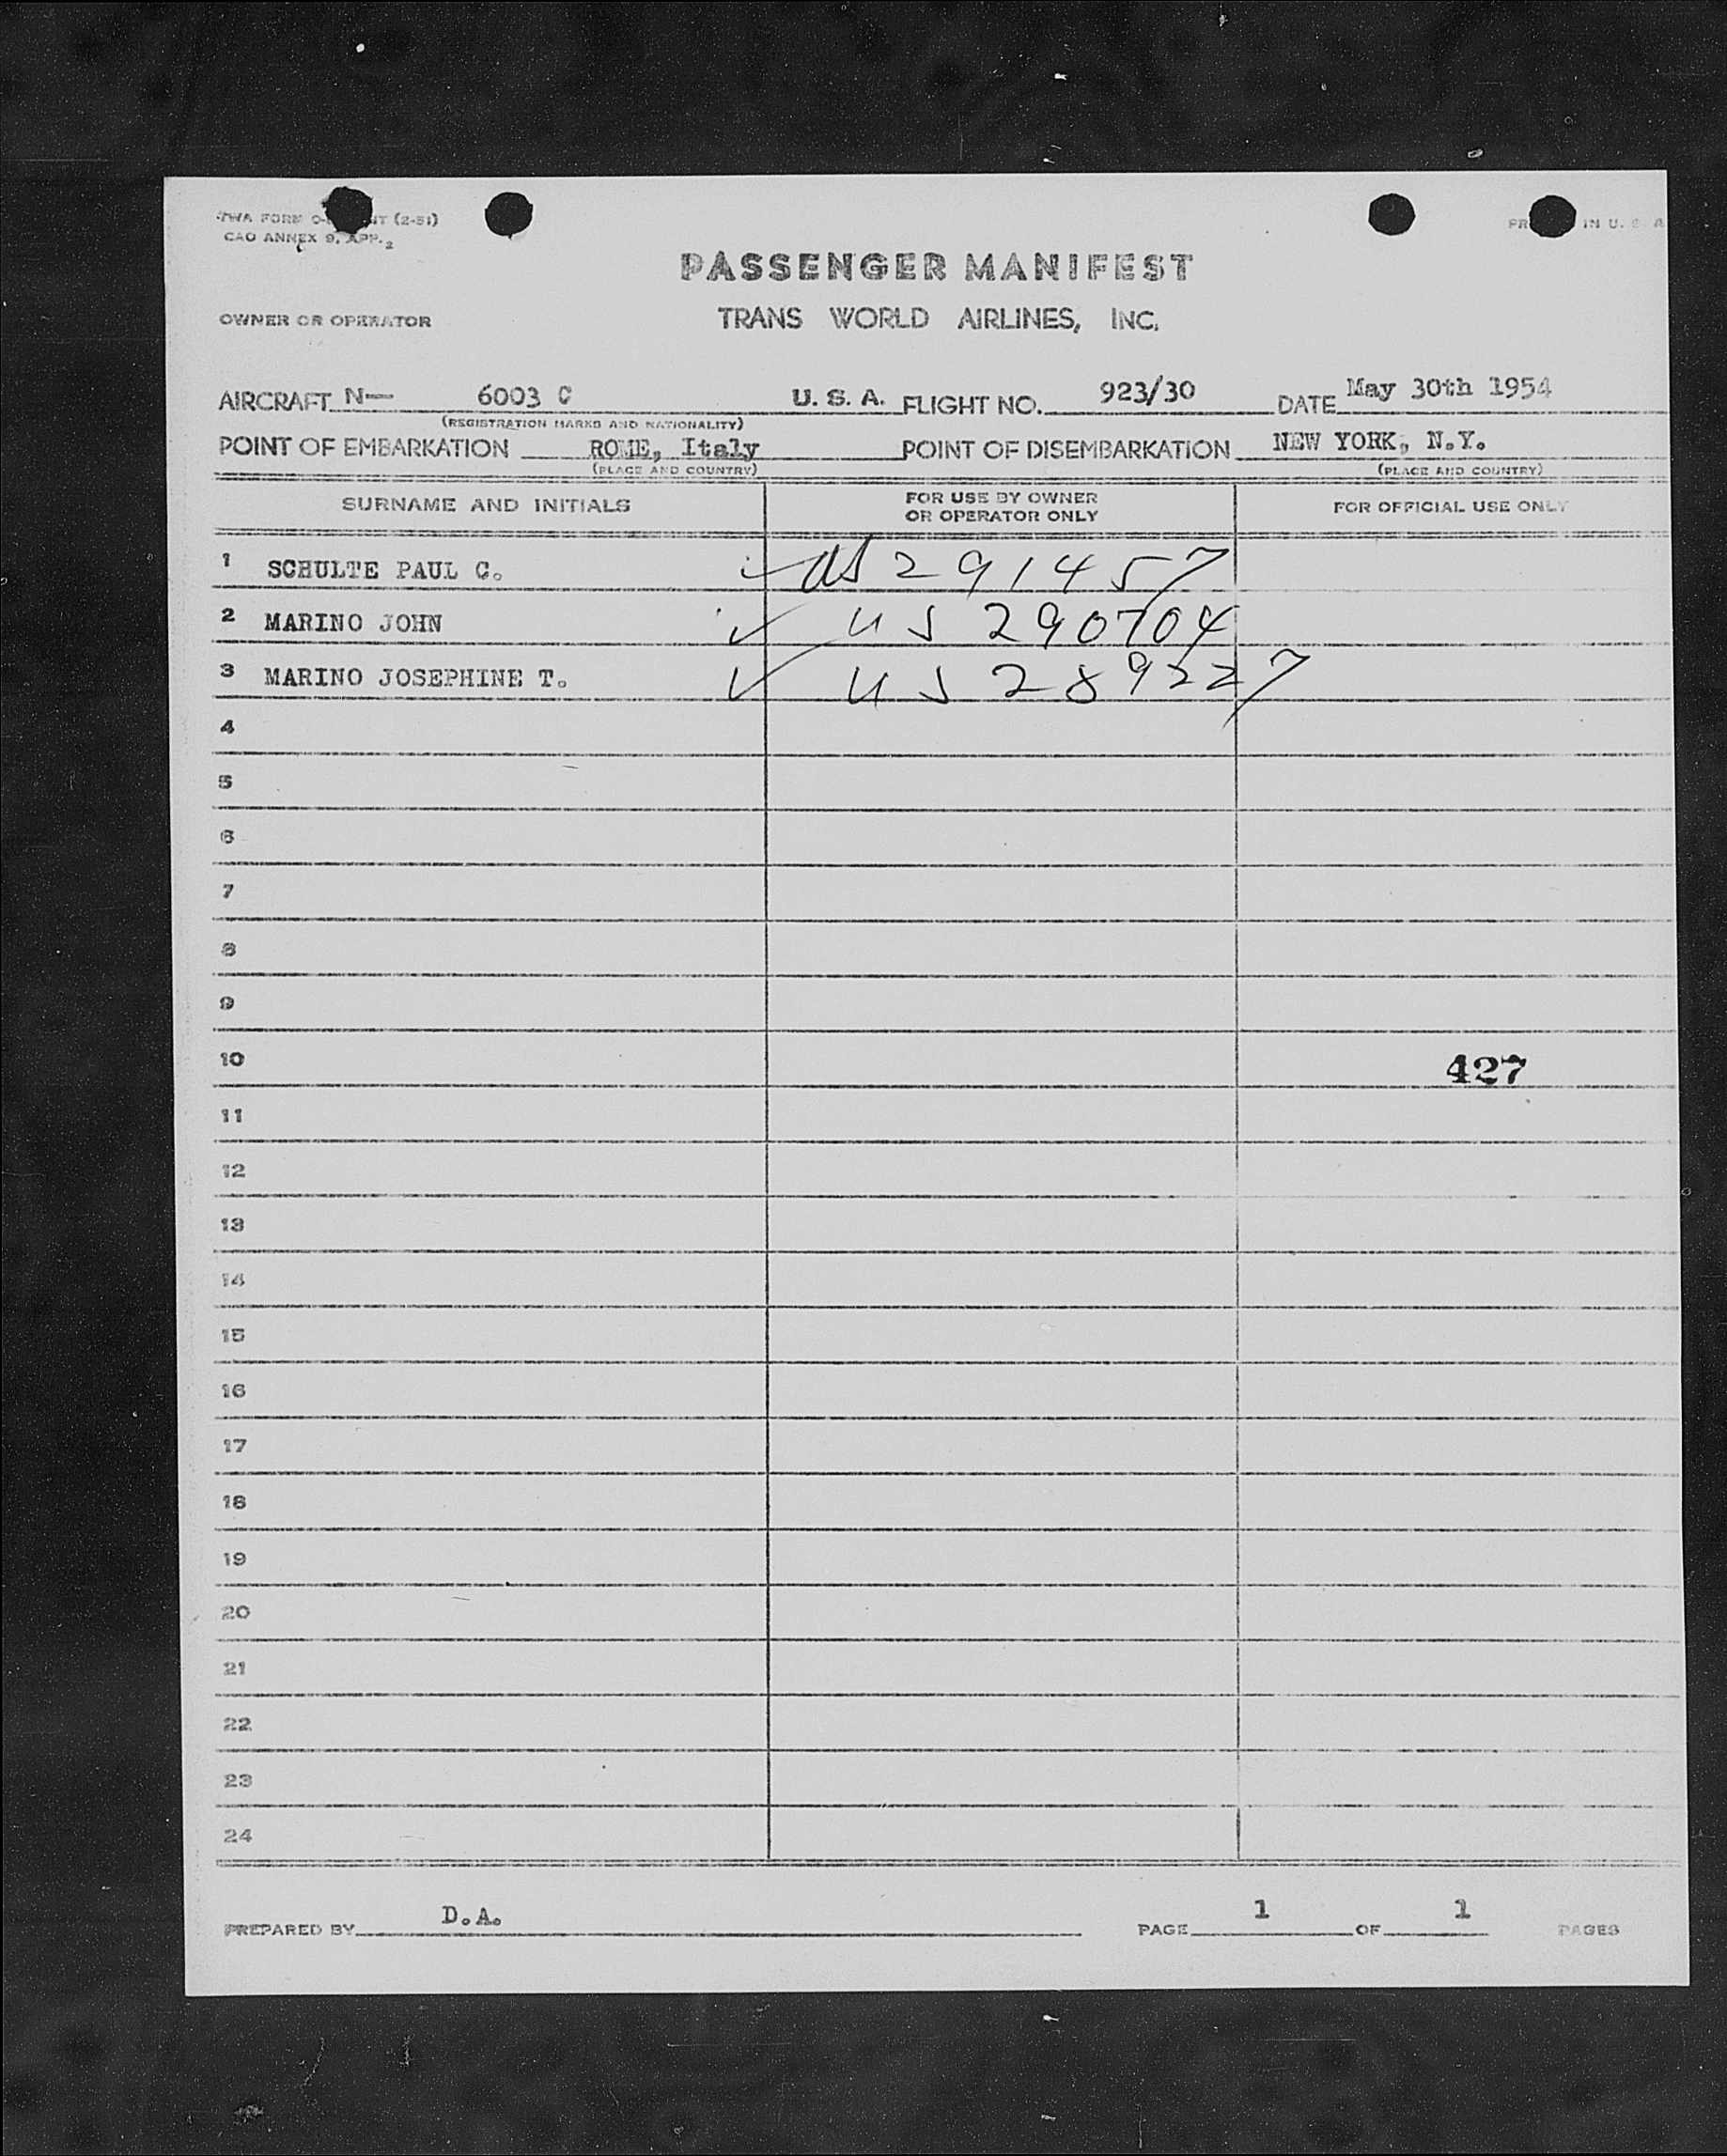 TWA FORM O- NT (2-51)
CAO ANNEX 9, APP. 2
PR IN U. S. A
PASSENGER MANIFEST
OWNER OR OPERATOR TRANS WORLD AIRLINES, INC.
AIRCRAFT N— 6003 C U. S. A. FLIGHT NO. 923/30 DATE May 30th 1954
(REGISTRATION MARKS AND NATIONALITY)
POINT OF EMBARKATION ROME, Italy POINT OF DISEMBARKATION NEW YORK, N.Y.
(PLACE AND COUNTRY) (PLACE AND COUNTRY)
SURNAME AND INITIALS FOR USE BY OWNER OR OPERATOR ONLY FOR OFFICIAL USE ONLY
1 SCHULTE PAUL C. ✓ US 291457
2 MARINO JOHN ✓ US 290704
3 MARINO JOSEPHINE T. ✓ US 289227
4
5
6
7
8
9
10 427
11
12
13
14
15
16
17
18
19
20
21
22
23
24
PREPARED BY D.A. PAGE 1 OF 1 PAGES